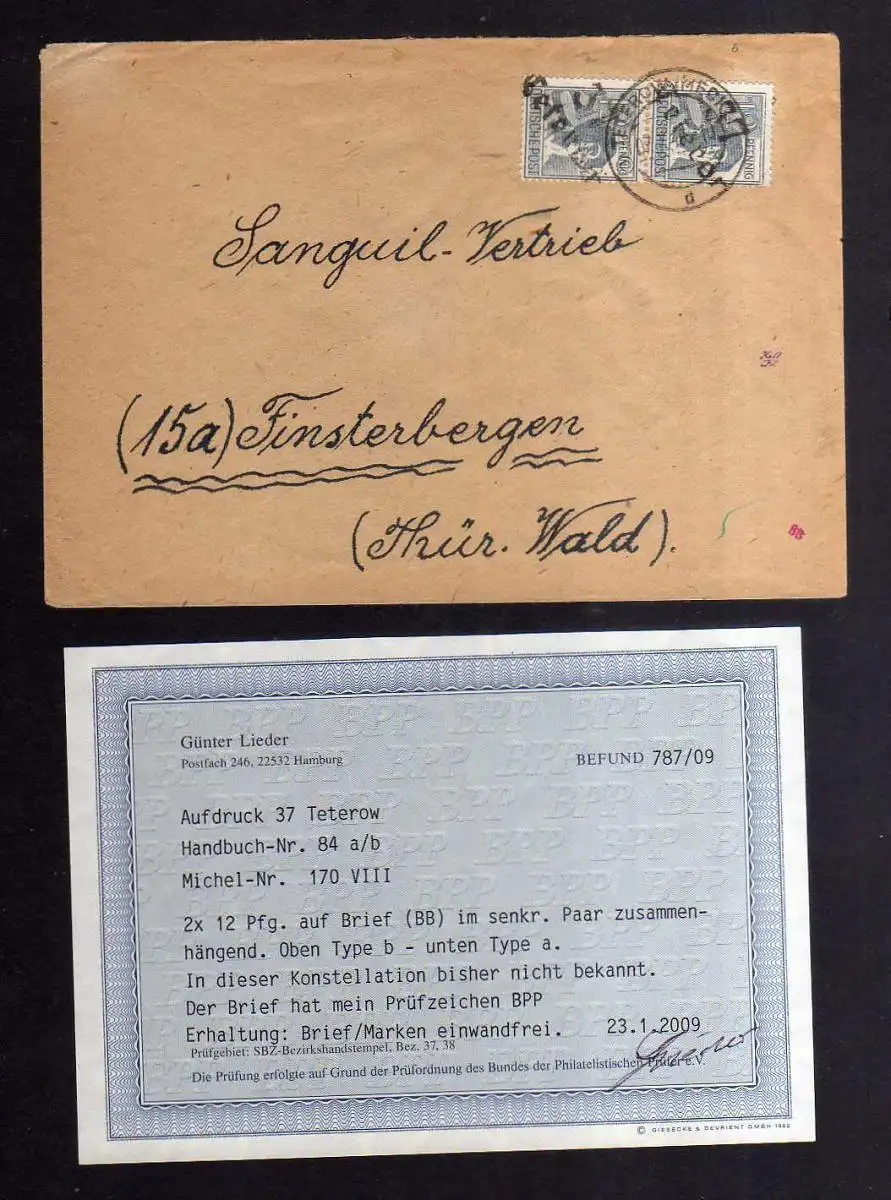 Sanguil-Vertrieb
(15a) Finsterbergen
(Thür. Wald).
BB
DEUTSCHE POST
PFENNIG
d
Günter Lieder
Postfach 246, 22532 Hamburg
BEFUND 787/09
Aufdruck 37 Teterow
Handbuch-Nr. 84 a/b
Michel-Nr. 170 VIII
2x 12 Pfg. auf Brief (BB) im senkr. Paar zusammen-
hängend. Oben Type b - unten Type a.
In dieser Konstellation bisher nicht bekannt.
Der Brief hat mein Prüfzeichen BPP
Erhaltung: Brief/Marken einwandfrei. 23.1.2009
Prüfgebiet: SBZ-Bezirkshandstempel, Bez. 37, 38
Die Prüfung erfolgte auf Grund der Prüfordnung des Bundes der Philatelistischen Prüfer e.V.
© GIESECKE & DEVRIENT GMBH